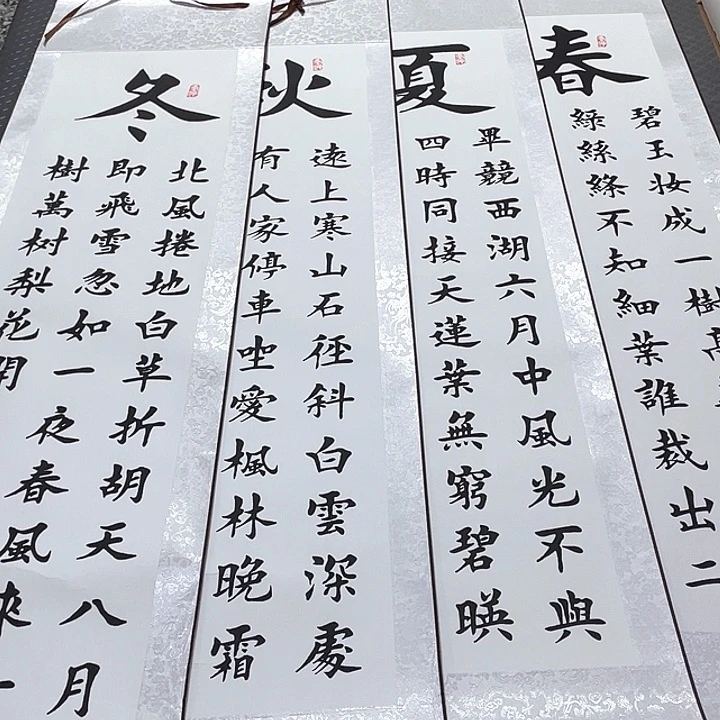 春
碧玉妆成一樹高
綠絲絛不知細葉誰裁出二
夏
畢競西湖六月中風光不與
四時同接天蓮葉無窮碧暎
秋
遠上寒山石徑斜白雲深處
有人家停車坐愛楓林晚霜
冬
北風捲地白草折胡天八月
即飛雪忽如一夜春風來一
樹萬树梨花開